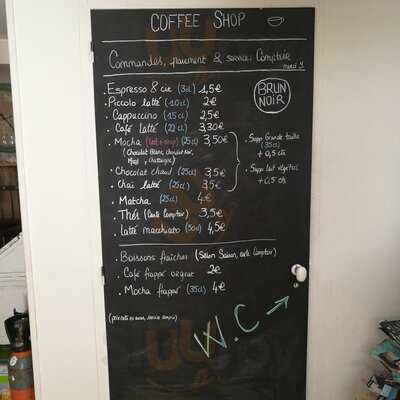 COFFEE SHOP
Commandes, paiement & service: Comptoir
merci !
BRUN
NOIR
. Espresso 8 cie (3cl) 1,5€
. Piccolo latté (10cl) 2€
. Cappuccino (15cl) 2,5€
. Café latté (22cl) 3,30€
. Mocha (25cl) 3,50€
(Chocolat Blanc, chocolat noir,
Miel, chataigne)
. Chocolat chaud (25cl) 3,5€
. Chaï latté (25cl) 3,5€
. Matcha (25cl) 4€
. Thés (Carte Comptoir) 3,5€
. latté macchiato (50cl) 4,5€
. Supp Grande taille
(35cl)
+ 0,5 cts
. Supp Lait végétal
+ 0,5 cts
. Boissons fraîches (Selon Saison, carte Comptoir)
. Café frappé orgeat 2€
. Mocha frappé (35cl) 4€
(prix nets en euros, service compris)
W.C